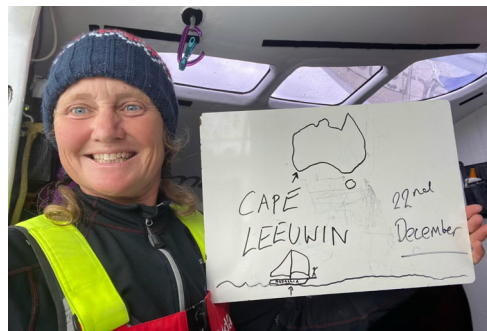 CAPE
LEEUWIN
22nd
December